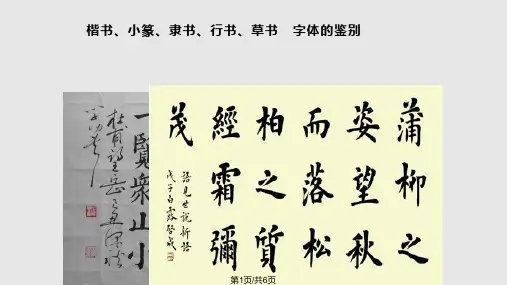 楷书、小篆、隶书、行书、草书　字体的鉴别
蒲柳之
姿望秋
而落松
柏之質
經霜彌
茂
語見世說新語
戊子白露
一覽衆山小
杜甫望岳
第1页/共6页